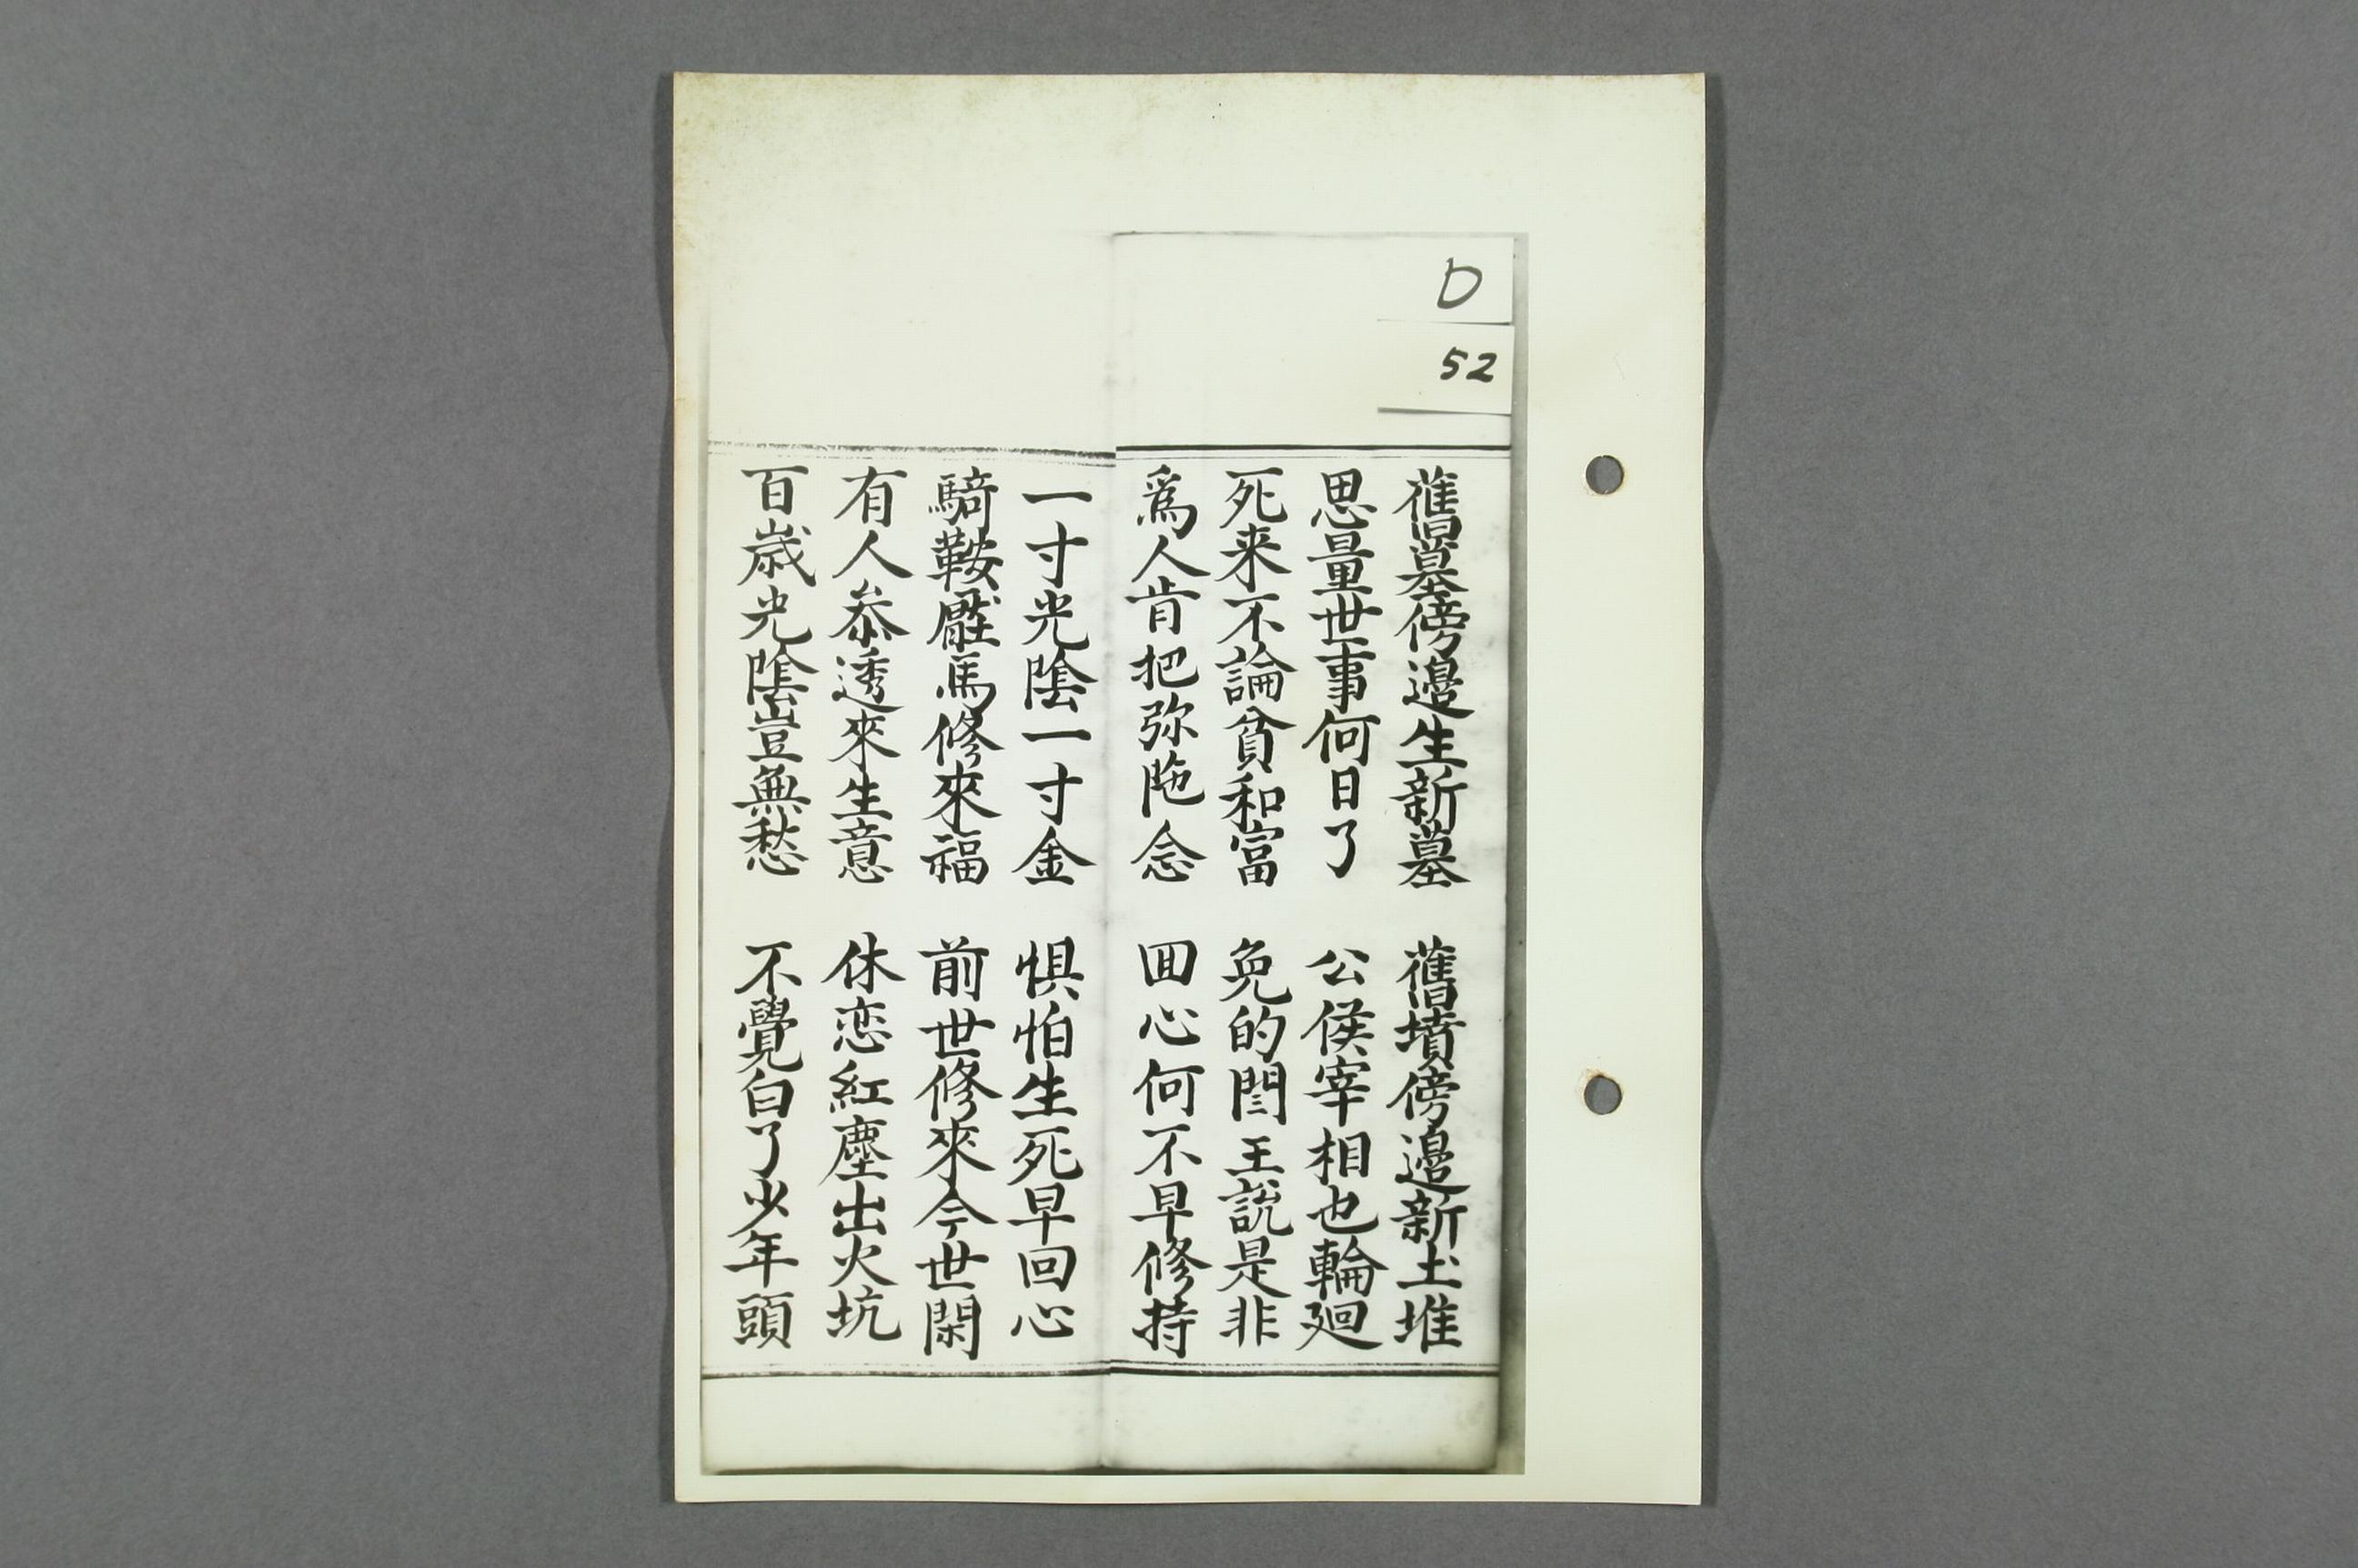 D
52
舊墓傍邊生新墓　舊墳傍邊新土堆
思量世事何日了　公侯宰相也輪廻
死来不論貧和富　免的閆王說是非
爲人肯把弥陁念　囬心何不早修持
一寸光陰一寸金　惧怕生死早回心
騎鞍壓馬修來福　前世修來今世閑
有人叅透來生意　休恋紅塵出火坑
百歲光陰豈無愁　不覺白了少年頭